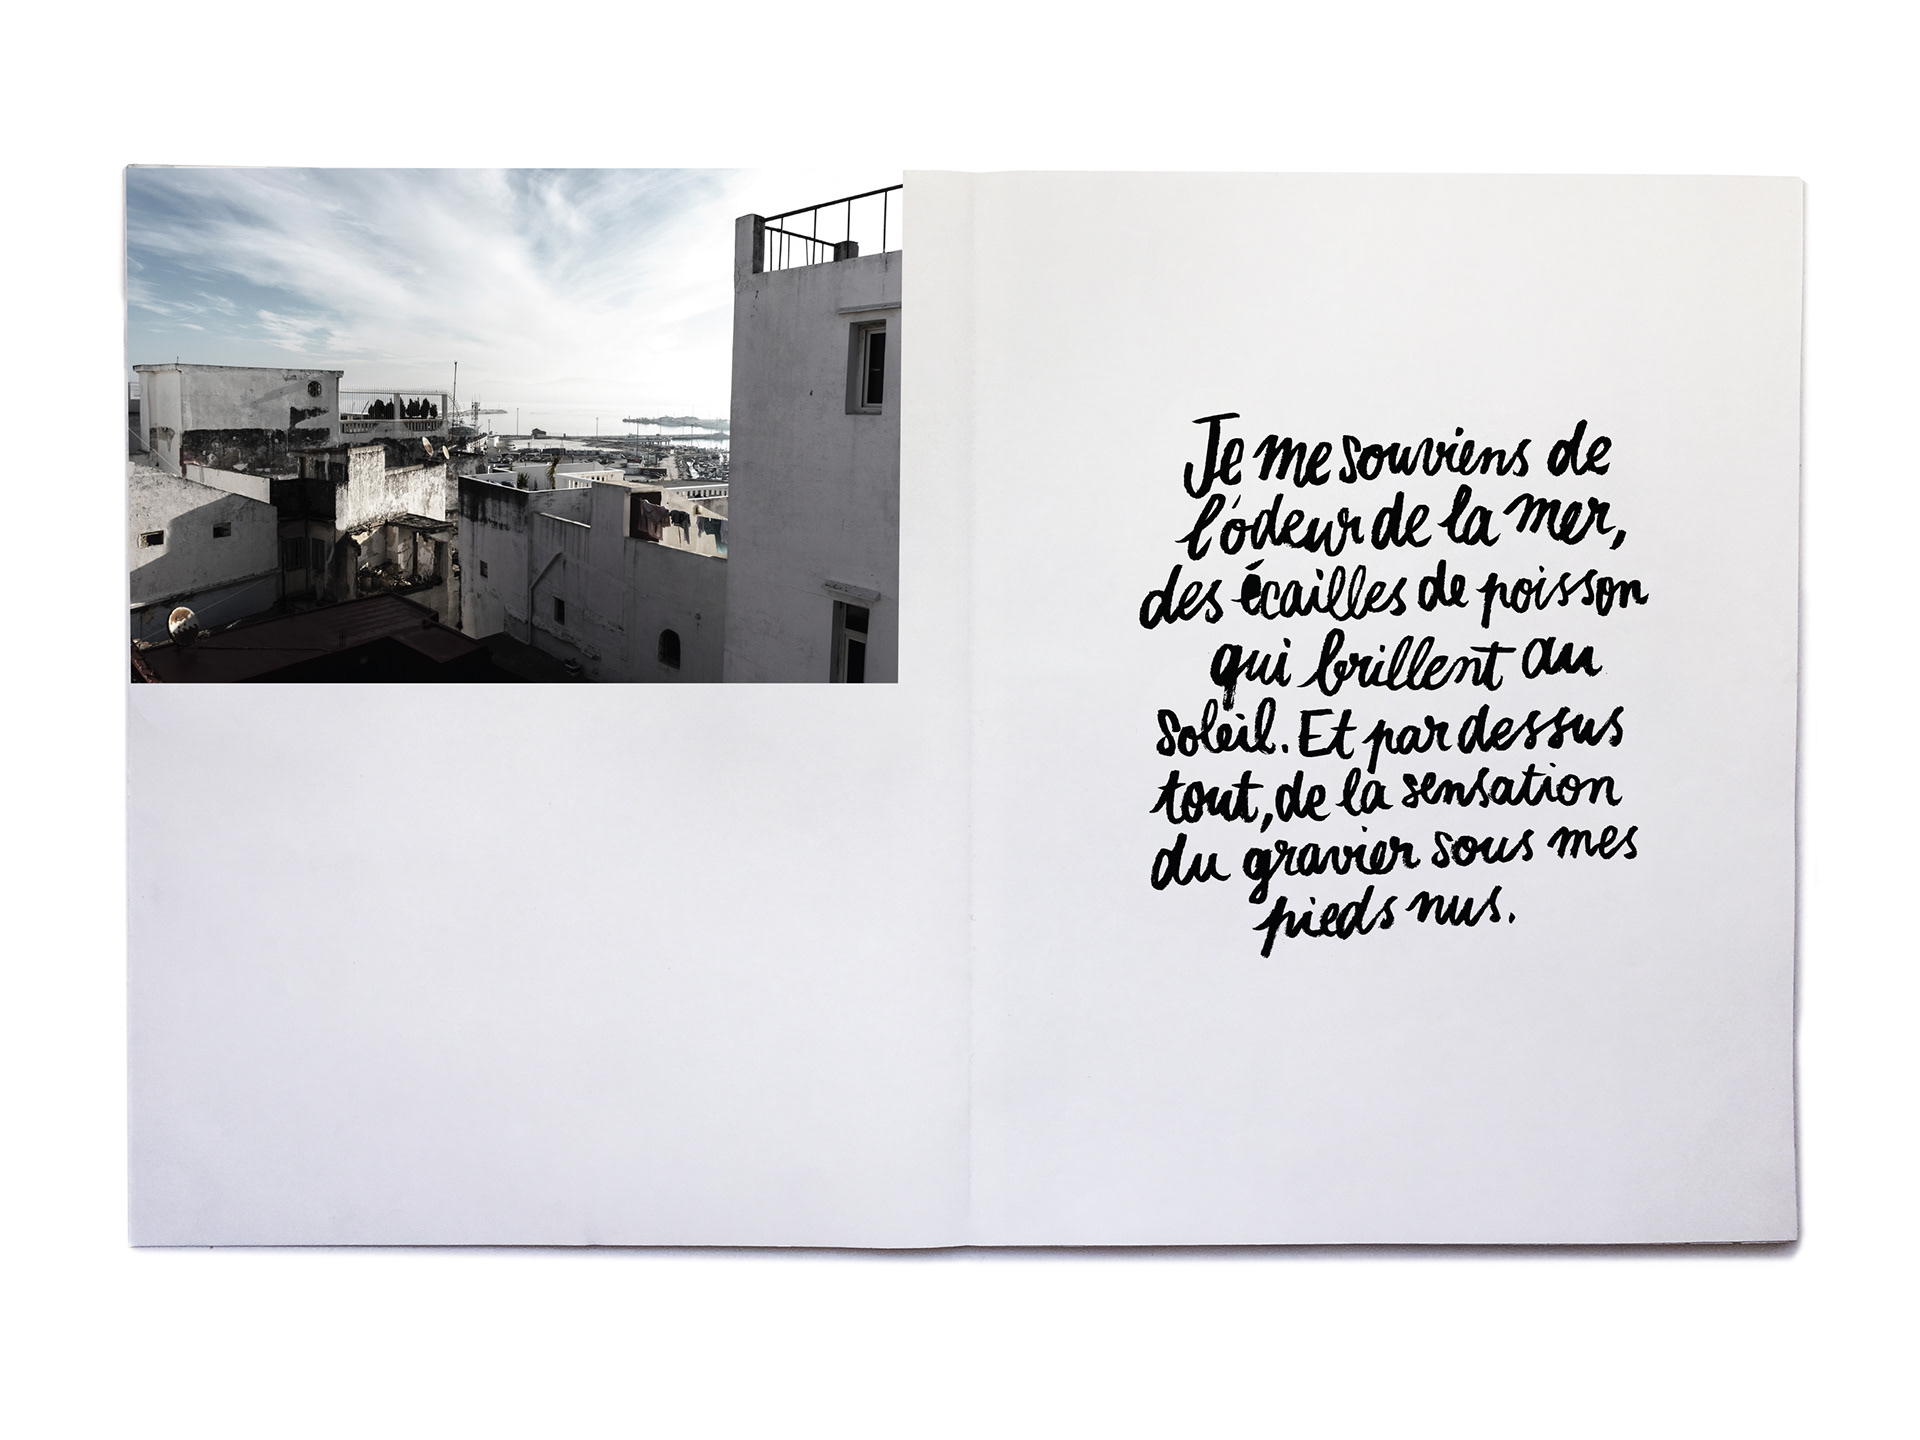 Je me souviens de
l'odeur de la mer,
des écailles de poisson
qui brillent au
soleil. Et par dessus
tout, de la sensation
du gravier sous mes
pieds nus.